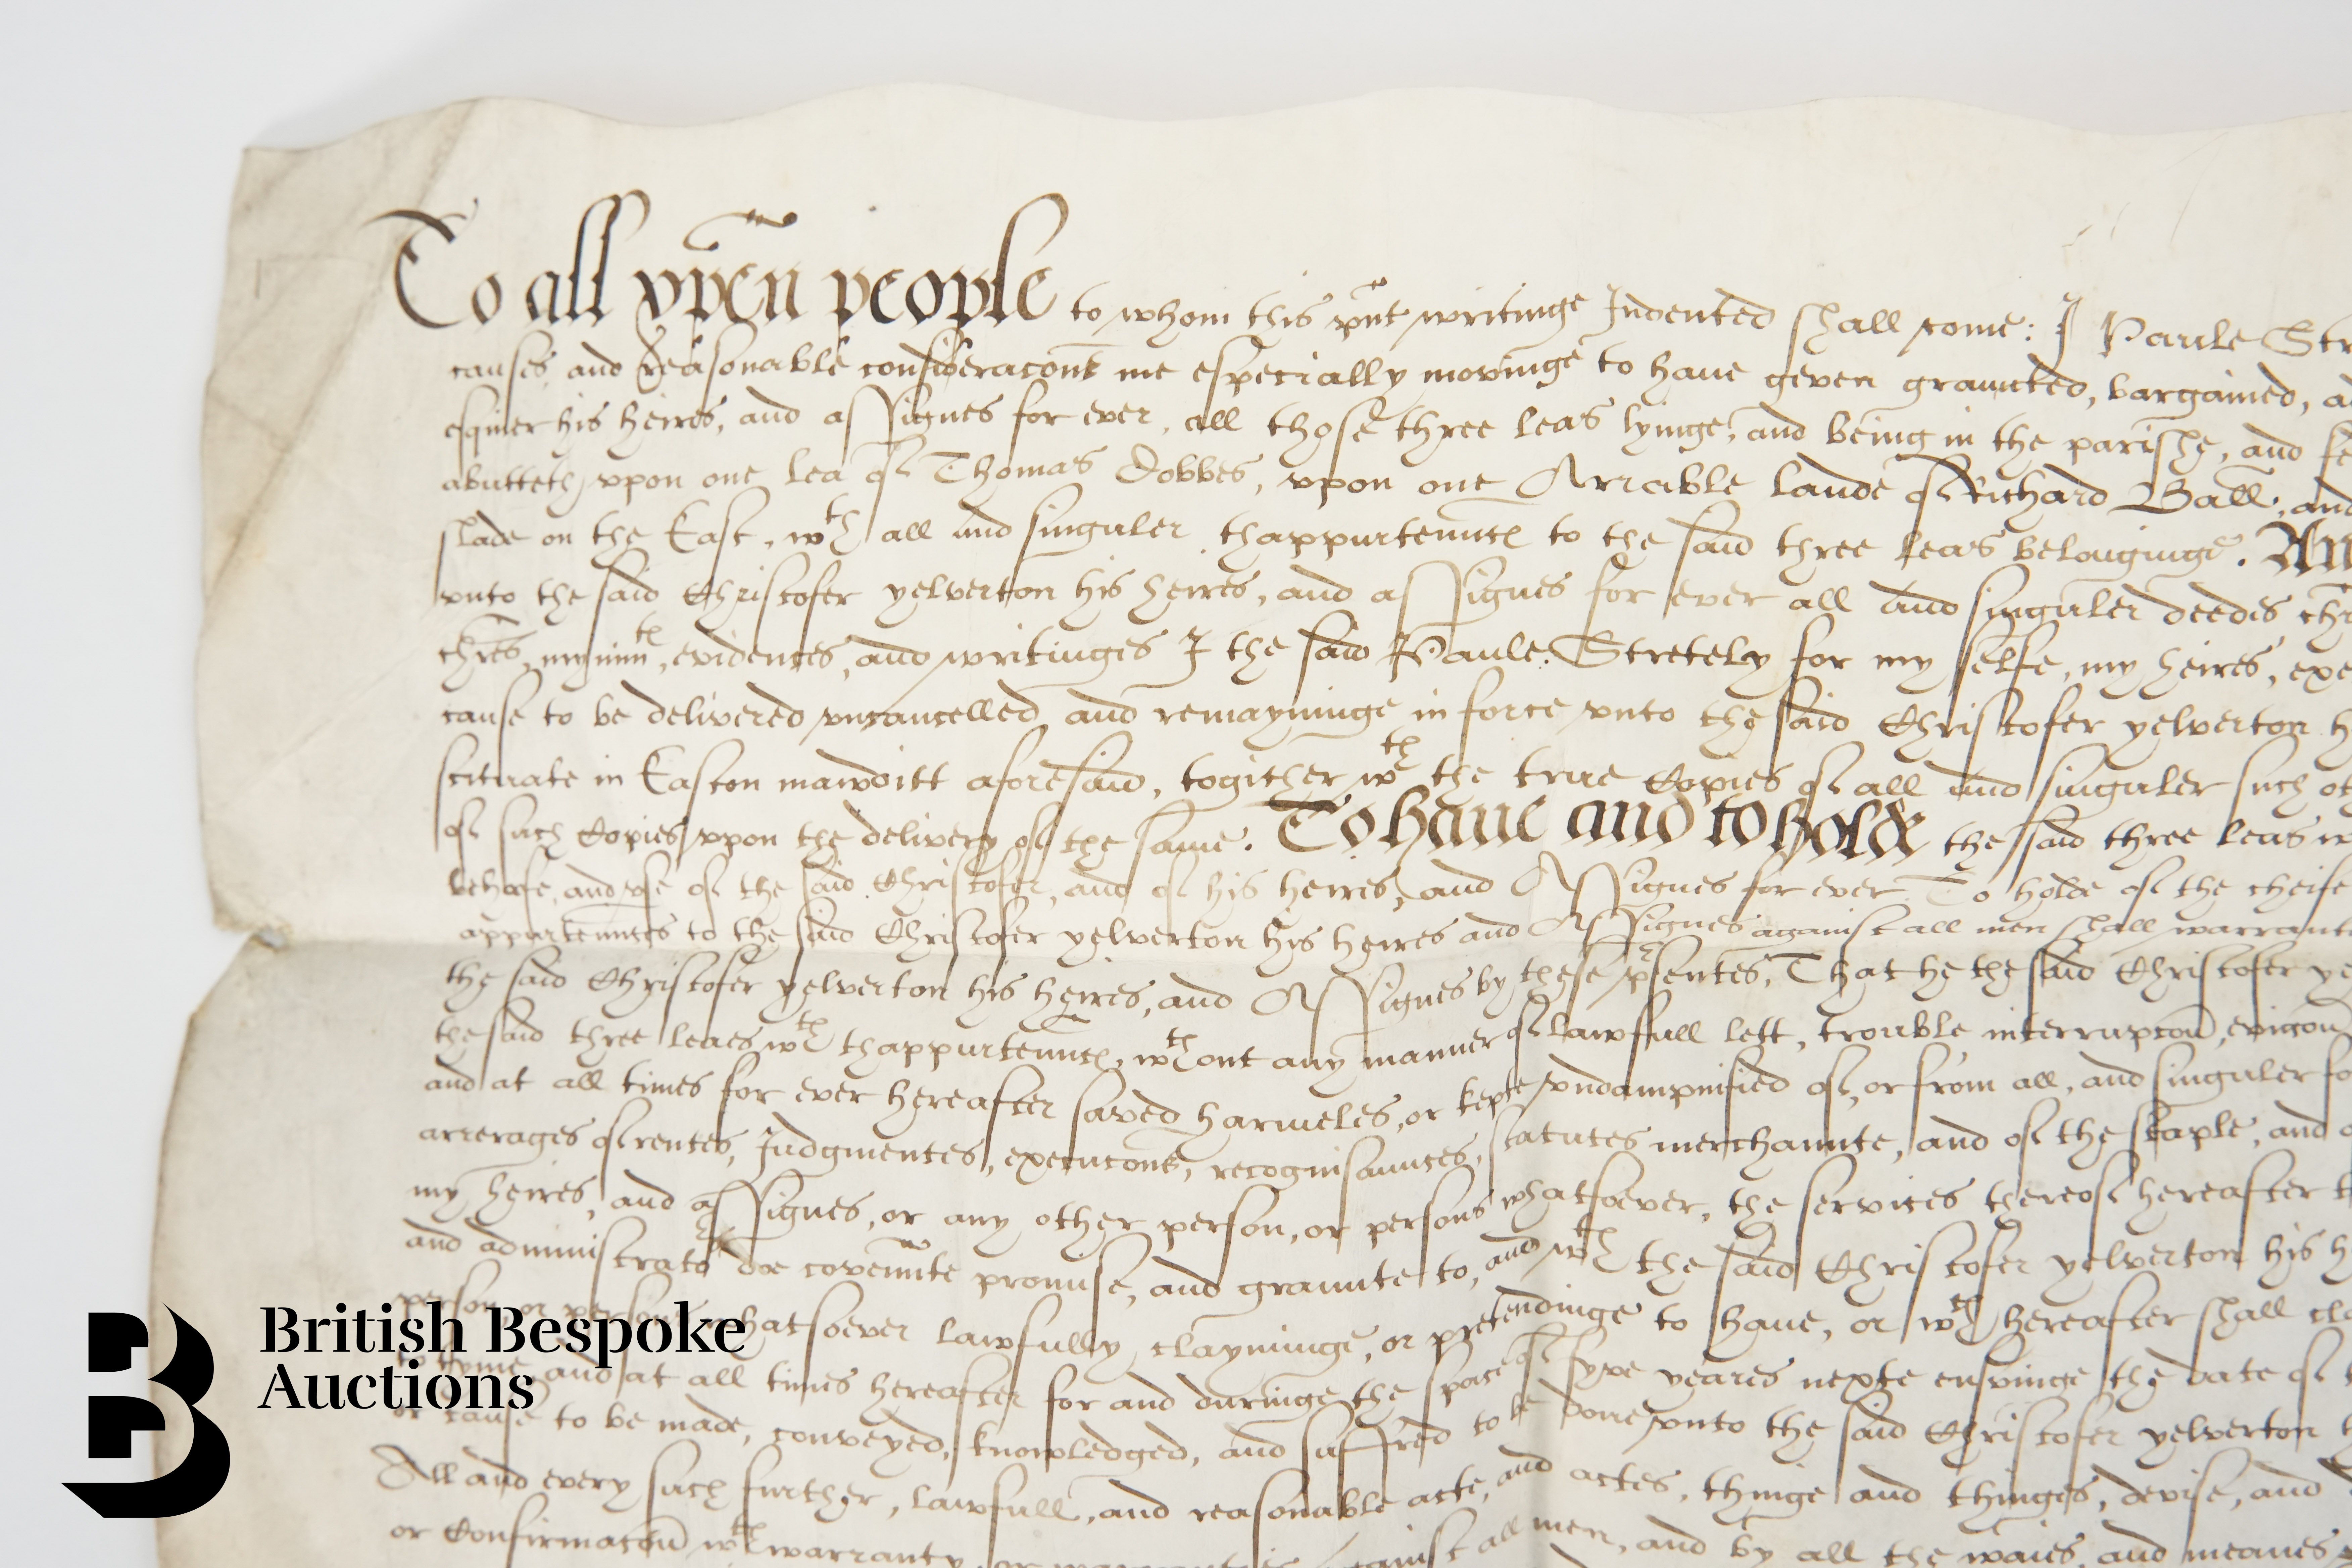 To all xpen people to whom this pnt writinge Indented shall come: I Paule Str
causes, and reasonable consideracons me especially movinge to haue geven graunted, bargained, a
esquier his heires, and assignes for ever, all those three leas lyinge, and being in the parishe, and fe
abutteth vpon one lea of Thomas Dobbes, vpon one Arrable lande of Richard Ball, and
slade on the East, wth all and singuler thappurtennces to the said three leas belonginge. An
vnto the said Christofer yelverton his heires, and assignes for ever all and singuler deedes chr
chres, mynimts, evidences, and writinges I the said Paule Stretely for my selfe, my heires, exe
cause to be delivered vncancelled, and remayninge in force vnto the said Christofer yelverton h
scituate in Easton mawditt aforesaid, togither wth the true Copies of all and singuler such ot
of such Copies vpon the delivery of the same. To haue and to holde the said three leas w
behofe, and vse of the said Christofer, and of his heires, and Assignes for ever. To holde of the cheife
appurtennces to the said Christofer yelverton his heires and Assignes against all men shall warrant
the said Christofer yelverton his heires, and Assignes by these psentes, That he the said Christofer ye
the said three leaes wth thappurtennces, wthout any manner of lawfull lett, trouble, interrupcon, evicon
and at all times for ever hereafter saved harmeles, or kepte vndampnified of, or from all, and singuler fo
arrerages of rentes, Judgmentes, execucons, recognisaunces, statutes merchaunte, and of the staple, and
my heires, and assignes, or any other person, or persons whatsoever, the services thereof hereafter t
and administrators doe covennte promise, and graunte to, and wth the said Christofer yelverton his h
person, or persons whatsoever lawfully clayminge, or pretendinge to haue, or wch hereafter shall cla
to tyme, and at all times hereafter for and duringe the space of fyve yeares nexte ensuinge the date of
or cause to be made, conveyed, knowledged, and suffred to be done vnto the said Christofer yelverton
All and every such further, lawfull, and reasonable acte, and actes, thinge and thinges, devise, and
or Confirmacon wth warranty, against all men, and by all the waies and meanes
British Bespoke
Auctions